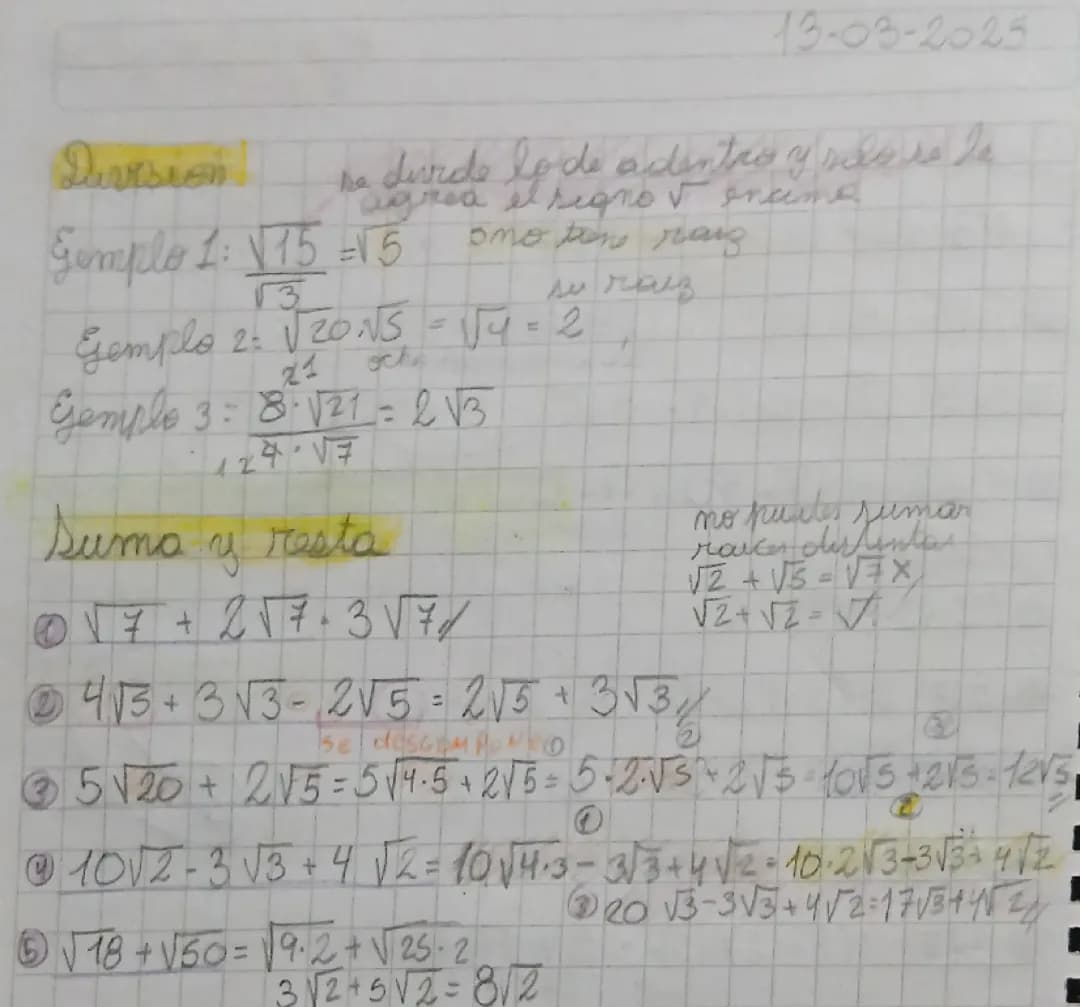 13-03-2025
División se divide lo de adentro y solo se le
agrea el signo √ encima
Ejemplo 1: √15/√3 = √5 raiz
su raiz
Ejemplo 2: √20 . √5 = √4 = 2
Ejemplo 3 = 8·√21/4·√7 = 2√3
Suma y resta
no puedes sumar
raices distintas
√2 + √5 = √7 x
√2 + √2 = √
① √7 + 2√7 . 3√7//
② 4√5 + 3√3 - 2√5 = 2√5 + 3√3//
se descompone ① ② ③
③ 5√20 + 2√5 = 5√4·5 + 2√5 = 5·2·√5 + 2√5 = 10√5 + 2√5 = 12√5
① ②
④ 10√2 - 3√3 + 4√2 = 10√4·3 - 3√3 + 4√2 = 10·2√3 - 3√3 + 4√2
③ 20√3 - 3√3 + 4√2 = 17√3 + 4√2//
⑤ √18 + √50 = √9·2 + √25·2
3√2 + 5√2 = 8√2